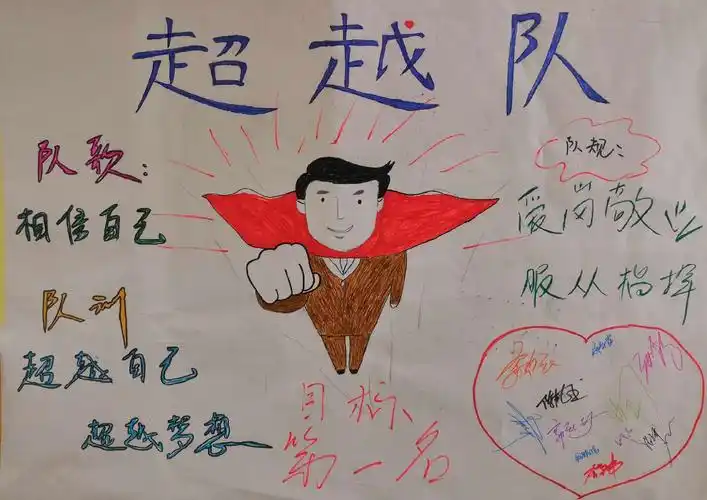 超越队
队歌：
相信自己
队训
超越自己
超越梦想
队规：
爱岗敬业
服从指挥
目标、
第一名